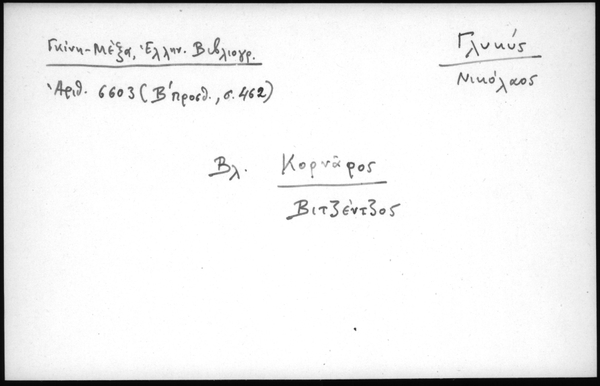 Γκίνη-Μέξα, Ἑλλην. Βιβλιογρ.
Ἀριθ. 6603 (Β' προσθ., σ. 462)
Γλυκύς
Νικόλαος
Βλ. Κορνᾶρος
Βιτζέντζος